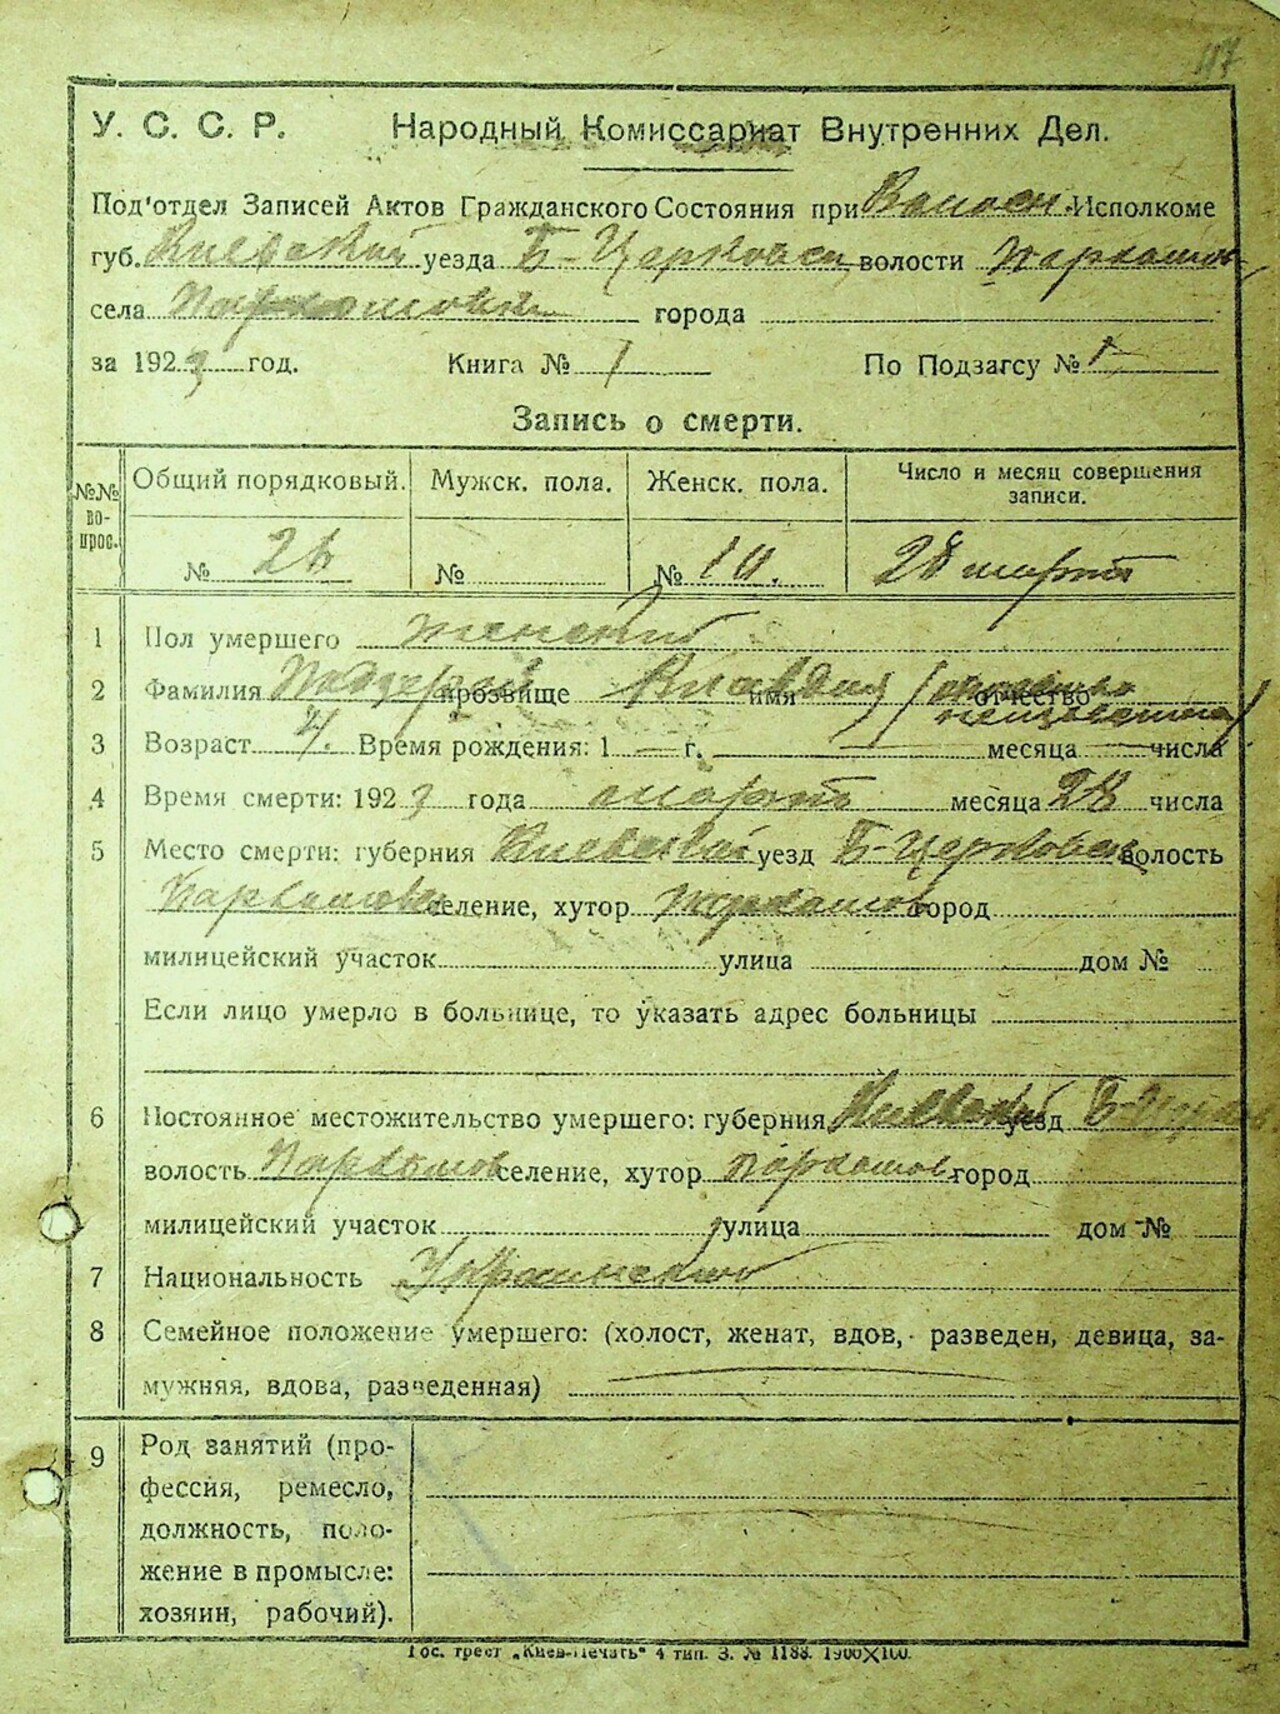 117
У. С. С. Р. Народный Комиссариат Внутренних Дел.
Под'отдел Записей Актов Гражданского Состояния при Волосн. Исполкоме
губ. Киевской уезда Б-Церковск волости Пархомов
села Пархомовки города
за 1923 год. Книга № 1 По Подзагсу № 1
Запись о смерти.
№№ вопрос. Общий порядковый. Мужск. пола. Женск. пола. Число и месяц совершения записи.
№ 26 № № 14. 28 марта
1 Пол умершего женский
2 Фамилия прозвище Клавдия имя отчество
неизвестно
3 Возраст 4. Время рождения: 1 — г. месяца числа
4 Время смерти: 1923 года марта месяца 28 числа
5 Место смерти: губерния Киевской уезд Б-Церковск волость
Пархомов селение, хутор Пархомов город
милицейский участок улица дом №
Если лицо умерло в больнице, то указать адрес больницы
6 Постоянное местожительство умершего: губерния Киевской уезд
волость Пархомов селение, хутор Пархомов город
милицейский участок улица дом №
7 Национальность
8 Семейное положение умершего: (холост, женат, вдов, разведен, девица, за-
мужняя, вдова, разведенная)
9 Род занятий (про-
фессия, ремесло,
должность, поло-
жение в промысле:
хозяин, рабочий).
Гос. трест „Киев-Печать“ 4 тип. З. № 1188. 1900X100.